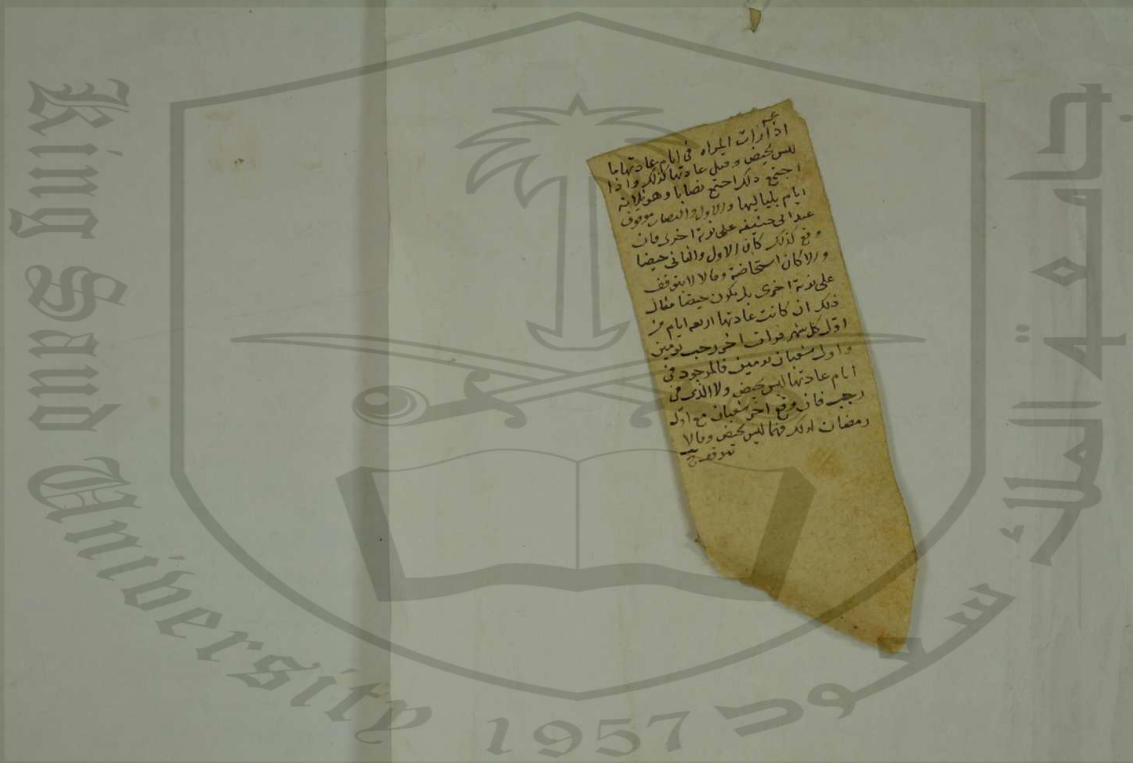 اذا رات المراه في ايام عادتها ما
ليس بحيض وقبل عادتها كذلك واذا
اجتمع ذلك اجتمع نصابا وهو ثلاثة
ايام بلياليها والاول والنصاب موقوف
عند ابى حنيفه على نوبة اخرى فان
وقع كذلك كان الاول والثانى حيضا
والا كان استحاضة وقالا لا يتوقف
على نوبة اخرى بل يكون حيضا مثال
ذلك ان كانت عادتها اربعه ايام من
اول كل شهر فرات اخر رجب يومين
واول شعبان يومين فالموجود فى
ايام عادتها ليس بحيض ولا الذى فى
رجب فان وقع اخر شعبان مع اول
رمضان ليس بحيض وقالا
King Saud University 1957
جامعة الملك سعود